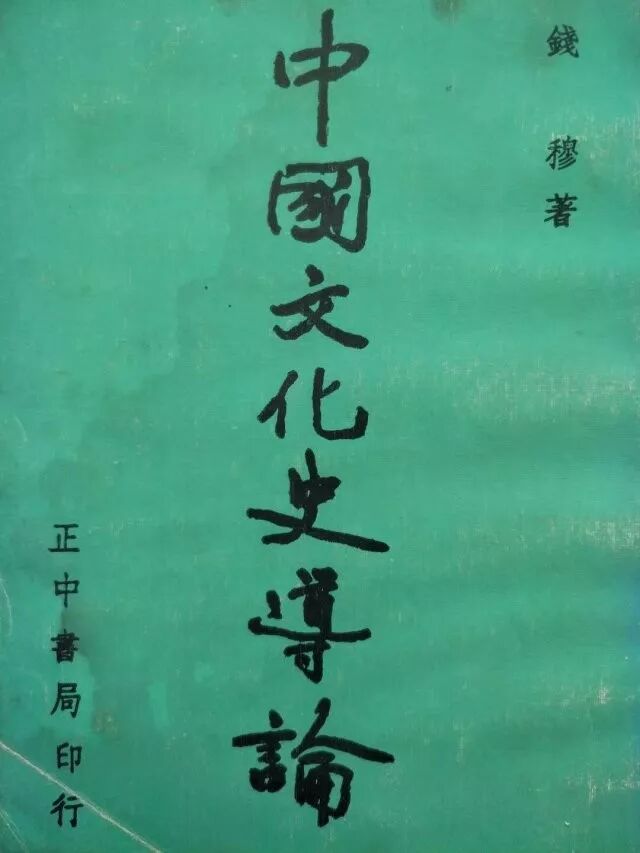 錢穆著
中國文化史導論
正中書局印行